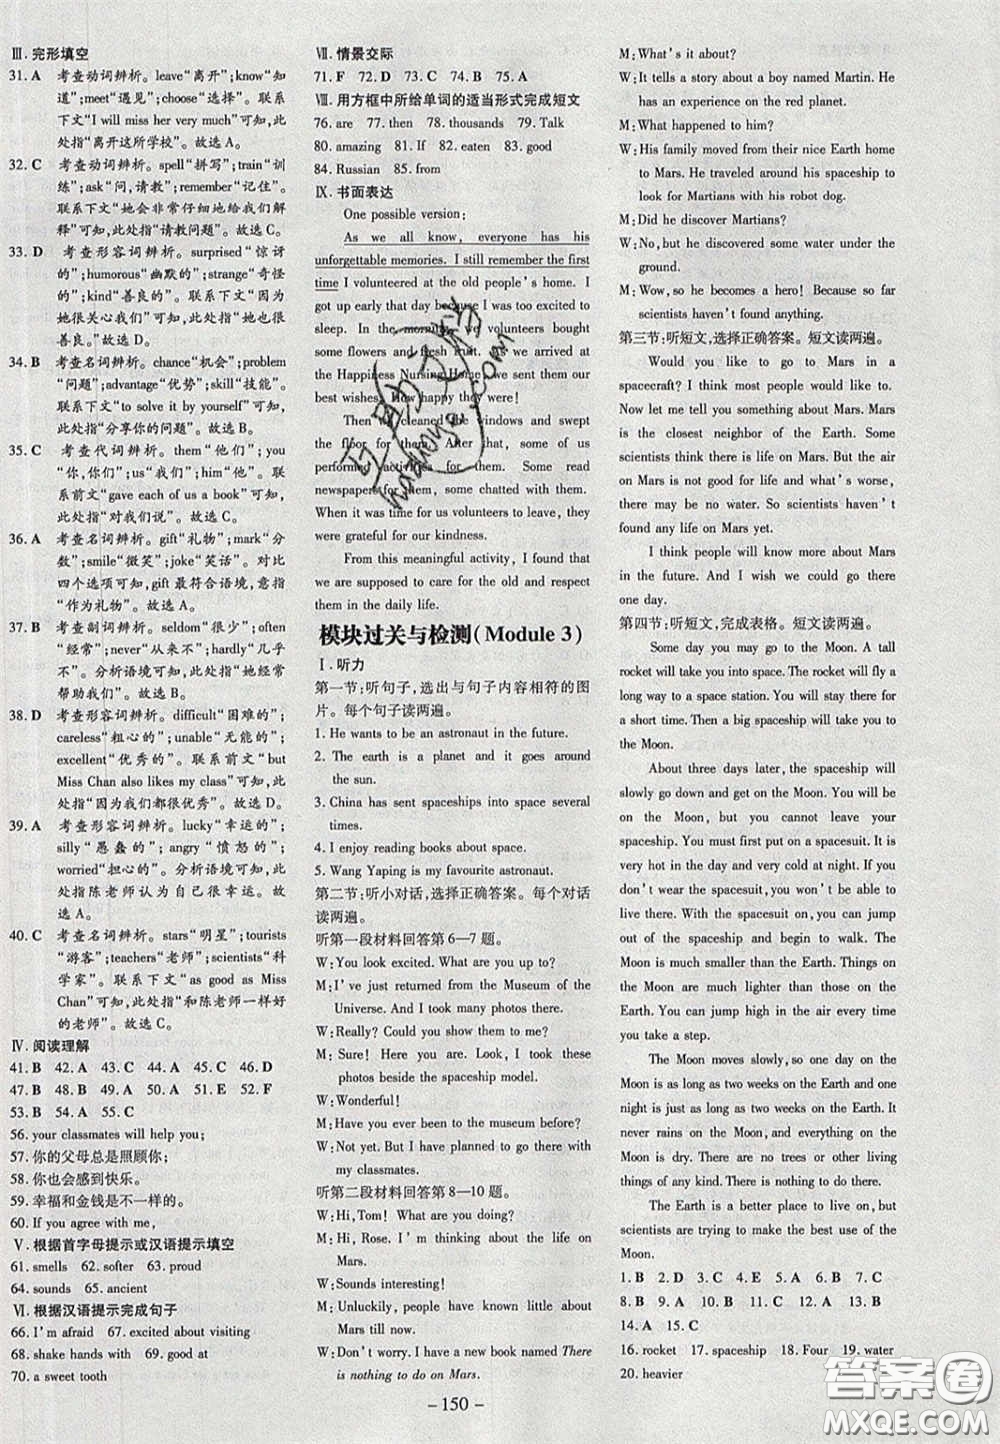 Ⅲ. 完形填空
31. A 考查动词辨析。leave“离开”;know“知
道”;meet“遇见”;choose“选择”。联系
下文“I will miss her very much”可知,此
处指“离开这所学校”。故选A。
32. C 考查动词辨析。spell“拼写”;train“训
练”;ask“问,请教”;remember“记住”。
联系下文“她会非常仔细地给我们解
释”可知,此处指“请教问题”。故选C。
33. D 考查形容词辨析。surprised“惊讶
的”;humorous“幽默的”;strange“奇怪
的”;kind“善良的”。联系下文“因为
她很关心我们”可知,此处指“她很善
良”。故选D。
34. B 考查名词辨析。chance“机会”;problem
“问题”;advantage“优势”;skill“技能”。
联系下文“to solve it by yourself”可知,
此处指“分享你的问题”。故选B。
35. C 考查代词辨析。them“他们”;you
“你,你们”;us“我们”;him“他”。联
系前文“gave each of us a book”可知,
此处指“对我们说”。故选C。
36. A 考查名词辨析。gift“礼物”;mark“分
数”;smile“微笑”;joke“笑话”。对比
四个选项可知,gift 最符合语境,意指
“作为礼物”。故选A。
37. B 考查副词辨析。seldom“很少”;often
“经常”;never“从来不”;hardly“几乎
不”。分析语境可知,此处指“她经常
帮助我们”。故选B。
38. D 考查形容词辨析。difficult“困难的”;
careless“粗心的”;unable“无能的”;
excellent“优秀的”。联系前文“but
Miss Chan also likes my class”可知,
此处指“因为我们都很优秀”。故选D。
39. A 考查形容词辨析。lucky“幸运的”;
silly“愚蠢的”;angry“愤怒的”;
worried“担心的”。分析语境可知,此
处指陈老师认为自己很幸运。故
选A。
40. C 考查名词辨析。stars“明星”;tourists
“游客”;teachers“老师”;scientists“科
学家”。联系下文“as good as Miss
Chan”可知,此处指“和陈老师一样好
的老师”。故选C。
Ⅳ. 阅读理解
41. B 42. A 43. C 44. A 45. C 46. D
47. B 48. B 49. A 50. A 51. E 52. F
53. B 54. A 55. C
56. your classmates will help you;
57. 你的父母总是照顾你;
58. 你也会感到快乐。
59. 幸福和金钱是不一样的。
60. If you agree with me,
Ⅴ. 根据首字母提示或汉语提示填空
61. smells 62. softer 63. proud
64. sounds 65. ancient
Ⅵ. 根据汉语提示完成句子
66. I'm afraid 67. excited about visiting
68. shake hands with 69. good at
70. a sweet tooth
Ⅶ. 情景交际
71. F 72. D 73. C 74. B 75. A
Ⅷ. 用方框中所给单词的适当形式完成短文
76. are 77. then 78. thousands 79. Talk
80. amazing 81. If 82. eaten 83. good
84. Russian 85. from
Ⅸ. 书面表达
One possible version:
As we all know, everyone has his
unforgettable memories. I still remember the first
time I volunteered at the old people's home. I
got up early that day because I was too excited to
sleep. In the morning, we volunteers bought
some flowers and fresh fruit. As we arrived at
the Happiness Nursing Home, we sent them our
best wishes. How happy they were!
Then we cleaned the windows and swept
the floor for them. After that, some of us
performed activities for them. Some read
newspapers for them, some chatted with them.
When it was time for us volunteers to leave, they
were grateful for our kindness.
From this meaningful activity, I found that
we are supposed to care for the old and respect
them in the daily life.
模块过关与检测(Module 3)
Ⅰ. 听力
第一节:听句子,选出与句子内容相符的图
片。每个句子读两遍。
1. He wants to be an astronaut in the future.
2. The earth is a planet and it goes around
the sun.
3. China has sent spaceships into space several
times.
4. I enjoy reading books about space.
5. Wang Yaping is my favourite astronaut.
第二节:听小对话,选择正确答案。每个对话
读两遍。
听第一段材料回答第6—7题。
W: You look excited. What are you up to?
M: I've just returned from the Museum of the
Universe. And I took many photos there.
W: Really? Could you show them to me?
M: Sure! Here are mine. I took these
photos beside the spaceship model.
W: Wonderful!
M: Have you ever been to the museum before?
W: Not yet. But I have planned to go there with
my classmates.
听第二段材料回答第8—10题。
W: Hi, Tom! What are you up to?
M: Hi, Rose. I'm doing a model of the life on
Mars.
W: Sounds interesting!
M: Unluckily, people have known little about
Mars till now.
W: Don't worry. I have a new book named There
is nothing to do on Mars.
M: What's it about?
W: It tells a story about a boy named Martin. He
has an experience on the red planet.
M: What happened to him?
W: His family moved from their nice Earth home
to Mars. He traveled around his spaceship to
look for Martians with his robot dog.
M: Did he discover Martians?
W: No, but he discovered some water under the
ground.
M: Wow, so he becomes a hero! Because so far
scientists haven't found anything.
第三节:听短文,选择正确答案。短文读两遍。
Would you like to go to Mars in a
spacecraft? I think most people would like to.
Now let me tell you something about Mars. Mars
is the closest neighbor of the Earth. Some
scientists think there is life on Mars. But the air
on Mars is not good for us, and what's worse,
there may be no water. So scientists haven't
found any life on Mars yet.
I think people will know more about Mars
in the future. And I wish we could go there
one day.
第四节:听短文,完成表格。短文读两遍。
Some day you may go to the Moon. A tall
rocket will take you there. The rocket will fly a
long way to a space station. You will stay there
for a short time. Then a big spaceship will take you to
the Moon.
About three days later, the spaceship will
slowly go down and get on the Moon. You will be on
the Moon, but you cannot leave your
spaceship. You must first put on a spacesuit. It is
very hot in the day and very cold at night. If you
don't wear the spacesuit, you won't be able to
live. With the spacesuit on, you can jump
out of the spaceship and begin to walk. The
Moon is much smaller than the Earth. Things on
the Moon are much lighter than those on the
Earth. You can jump high in the air every time
you take a step.
The Moon moves slowly, so one day on the
Moon is as long as two weeks on the Earth and one
night is just as long as two weeks on the Earth. It
never rains on the Moon, and everything on the
Moon is dead. There are no people or living
things of any kind. There is nothing to do.
The Earth is a better place to live on, but
scientists are trying to make the best use of the
Moon.
1. B 2. D 3. C 4. E 5. A 6. B 7. C
8. B 9. A 10. C 11. A 12. B 13. B
14. A 15. C
16. rocket 17. spaceship 18. Four 19. water
20. heavier
- 150 -
答案圈
MXQE.COM